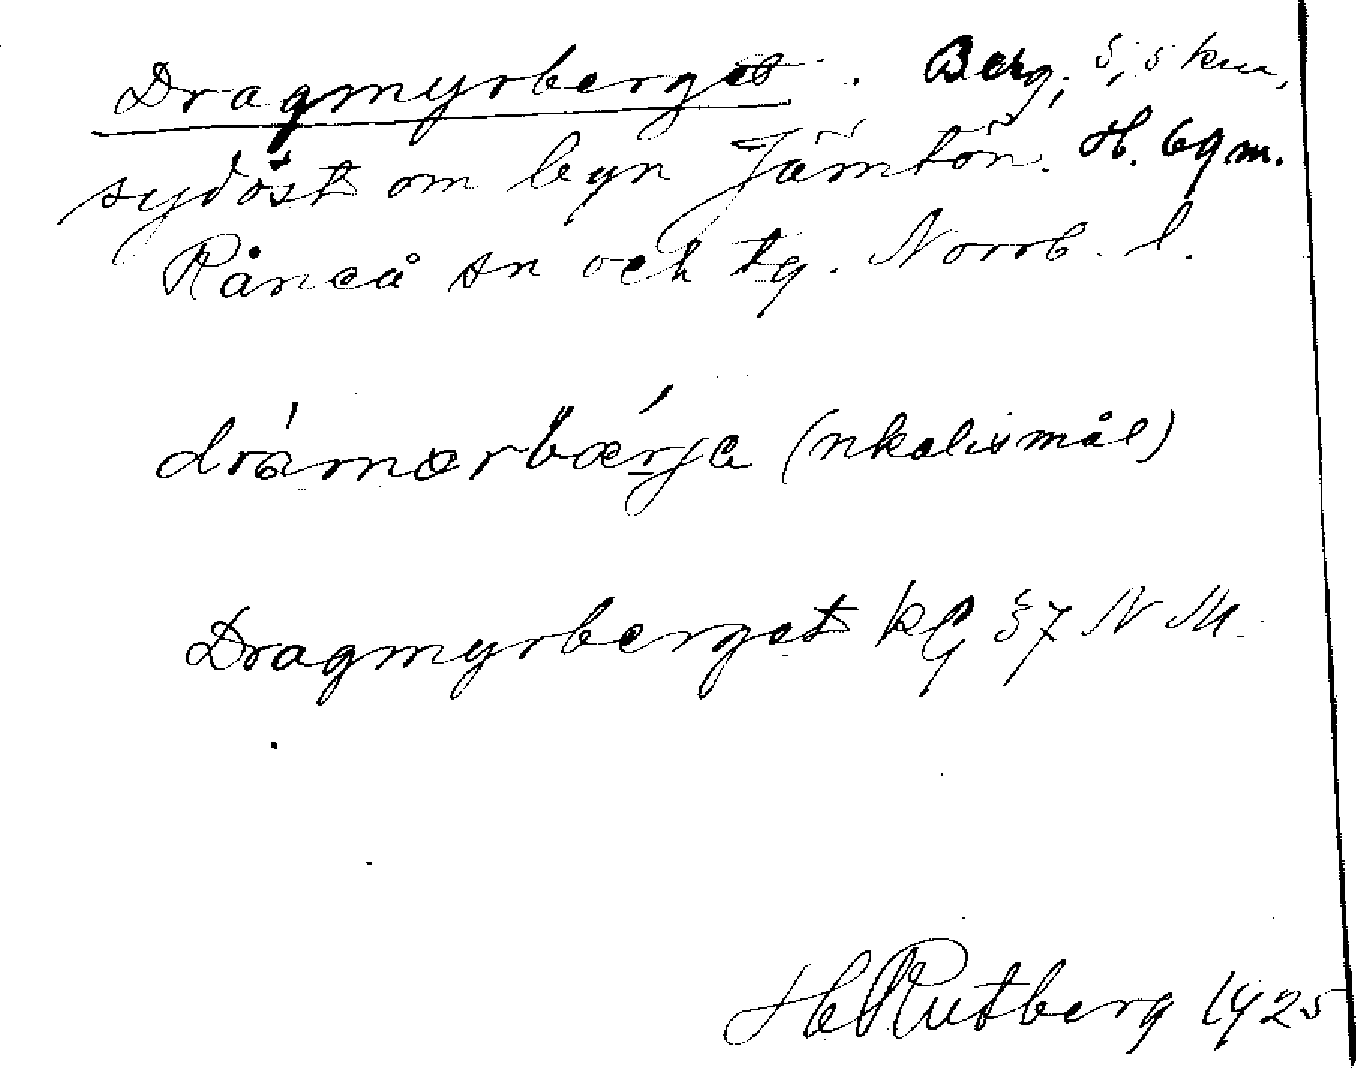 Dragmyrberget. Berg, 5,5 km,
sydöst om byn Jämtön. H. 69 m.
Råneå sn och tg. Norrb. l.
(nkalixmål)
Dragmyrberget kG 57 N M.
H Rutberg 1925